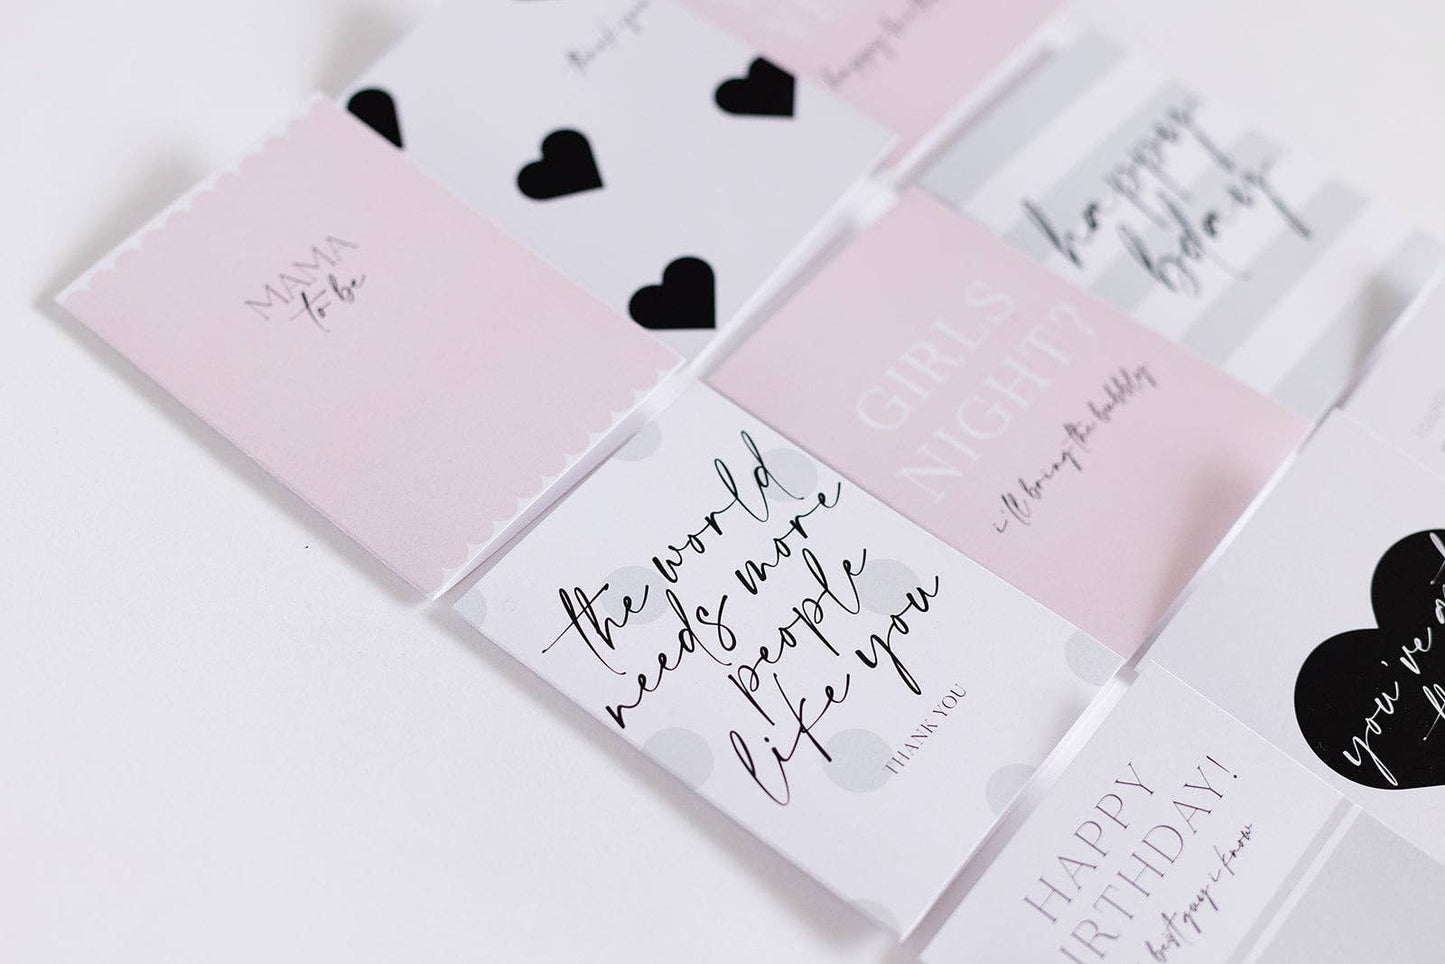 MAMA
to be
happy
bday
GIRLS
NIGHT?
i'll bring the bubbly
the world
needs more
people
like you
THANK YOU
you've got
HAPPY
IRTHDAY!
best guy i know